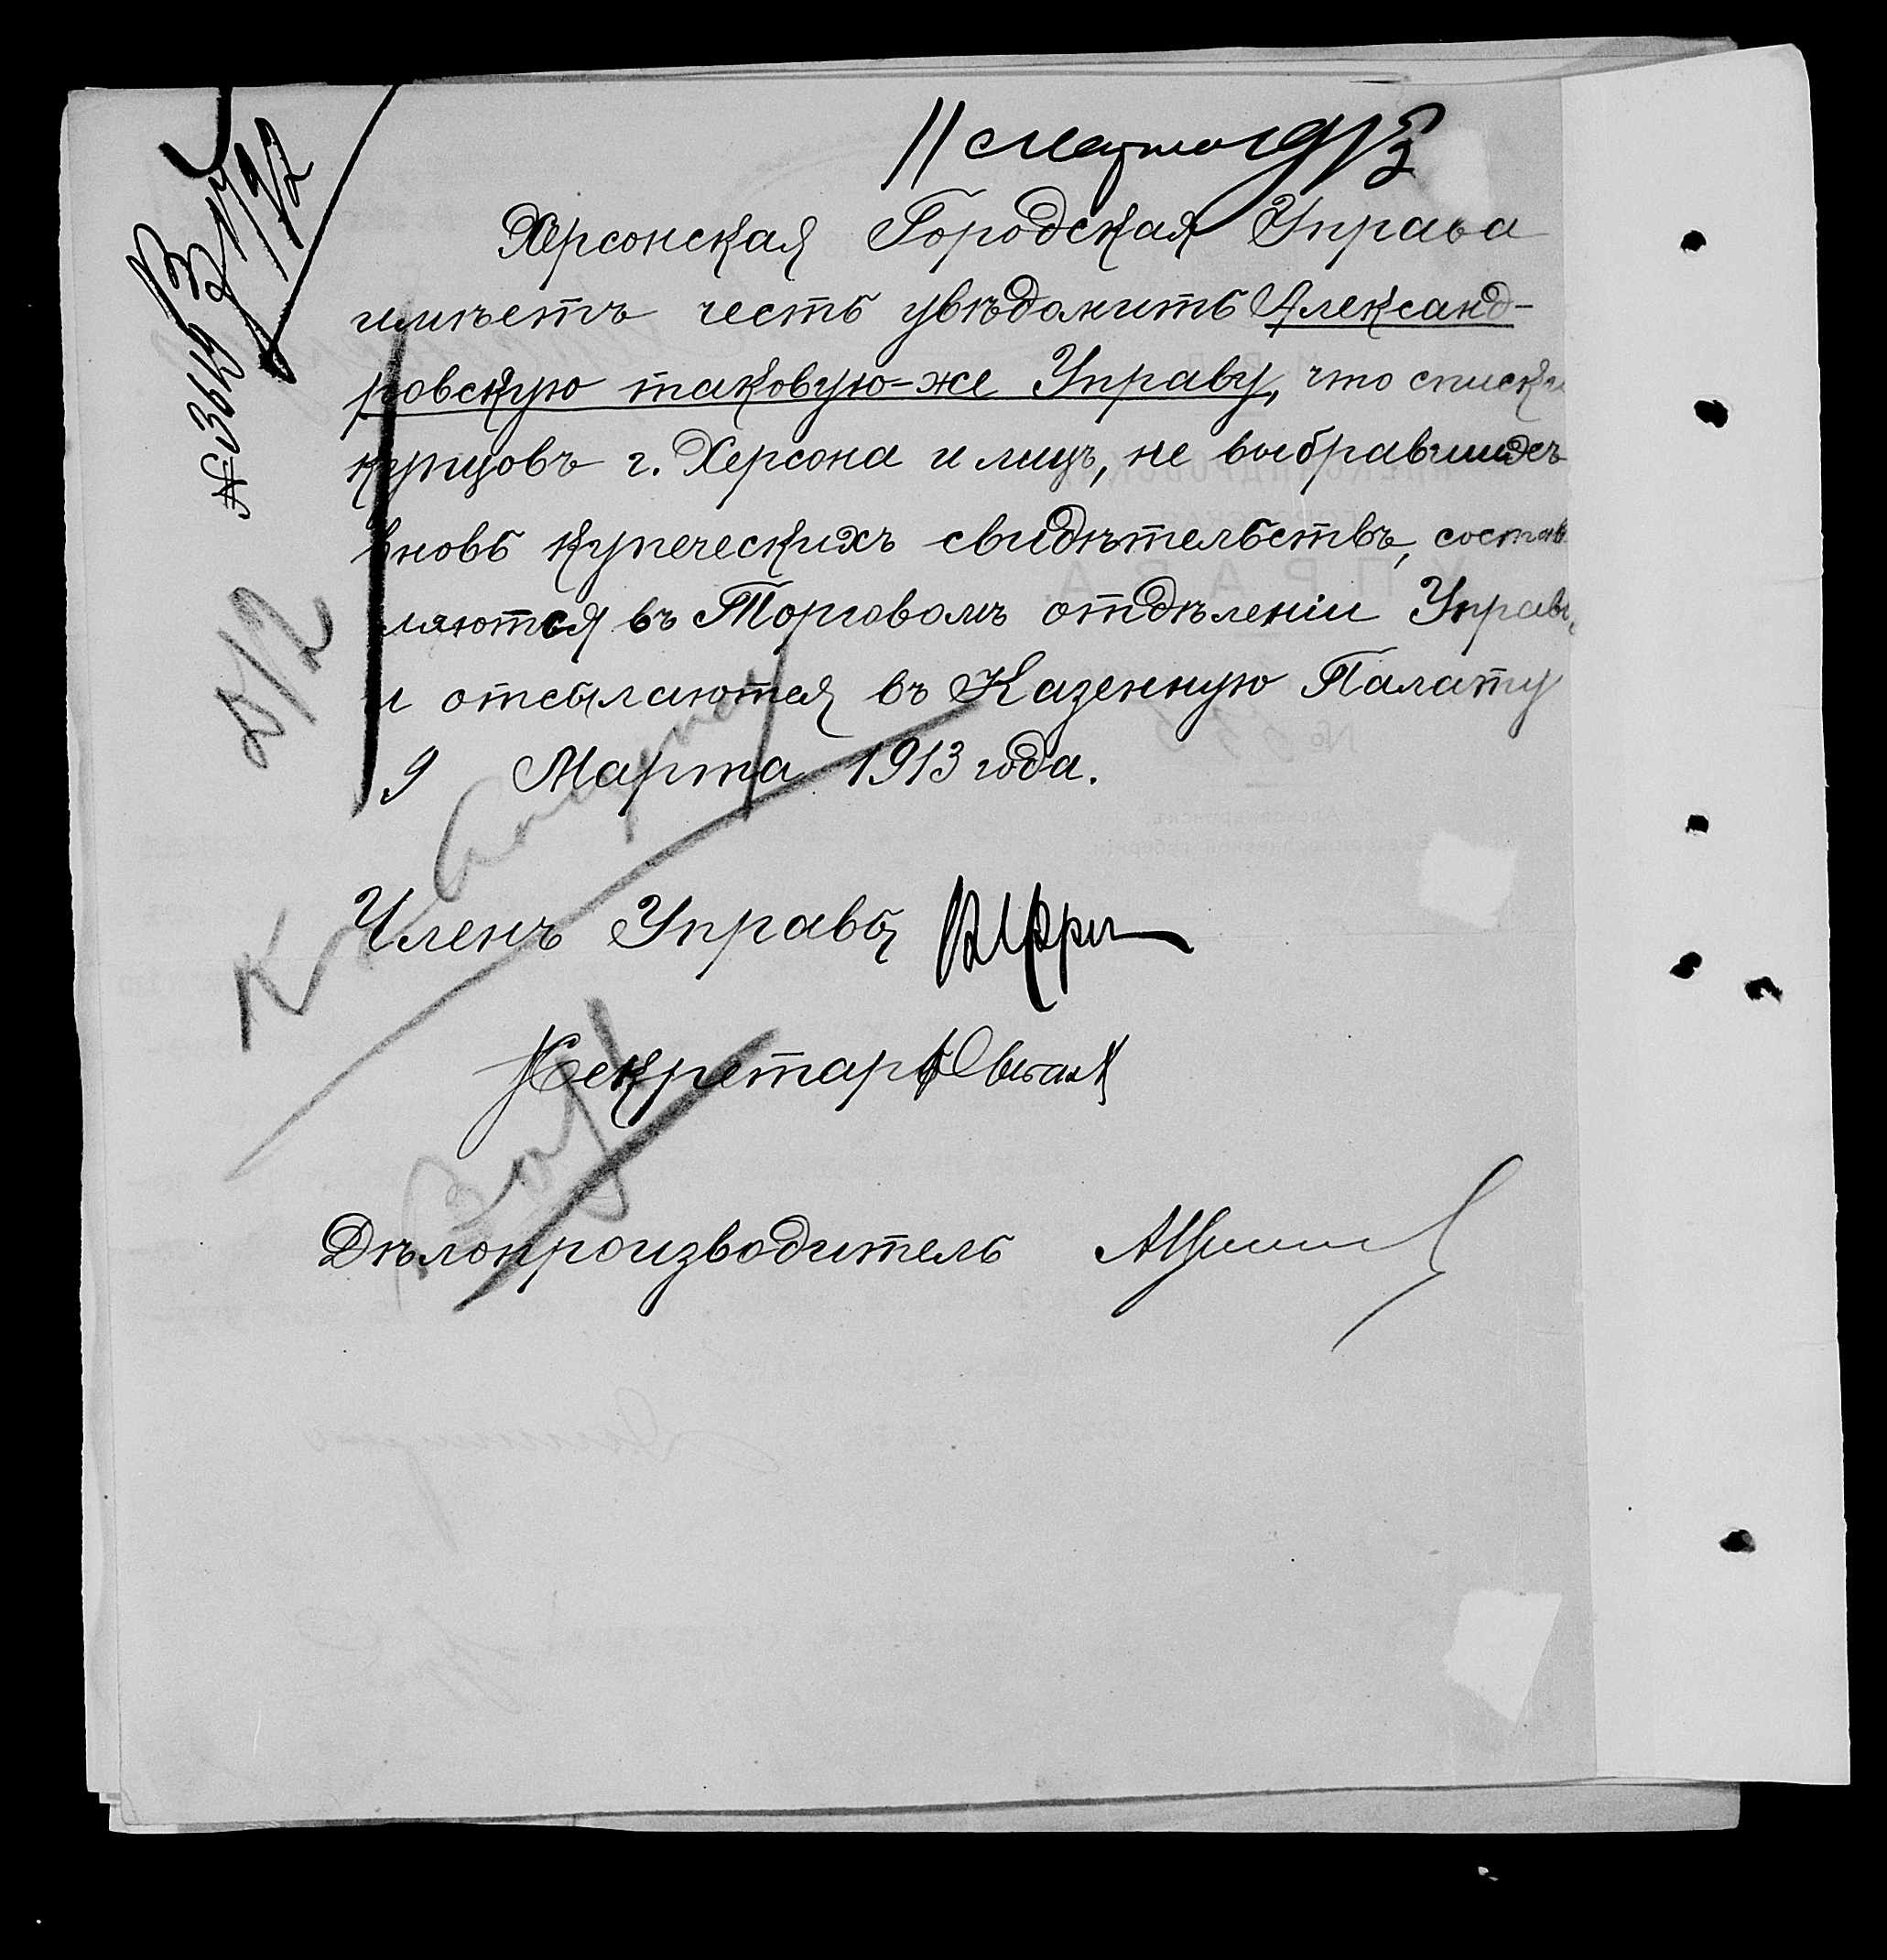 11 Марта 1913
Херсонская Городская Управа
имѣетъ честь увѣдомить Александ-
ровскую таковую-же Управу, что списки
купцовъ г. Херсона и лицъ, не выбравшихъ
вновь купеческихъ свидѣтельствъ, состав
ляются въ Торговомъ отдѣленіи Управы
и отсылаются въ Казенную Палату
9 Марта 1913 года.
Членъ Управы
Секретарь
Дѣлопроизводитель